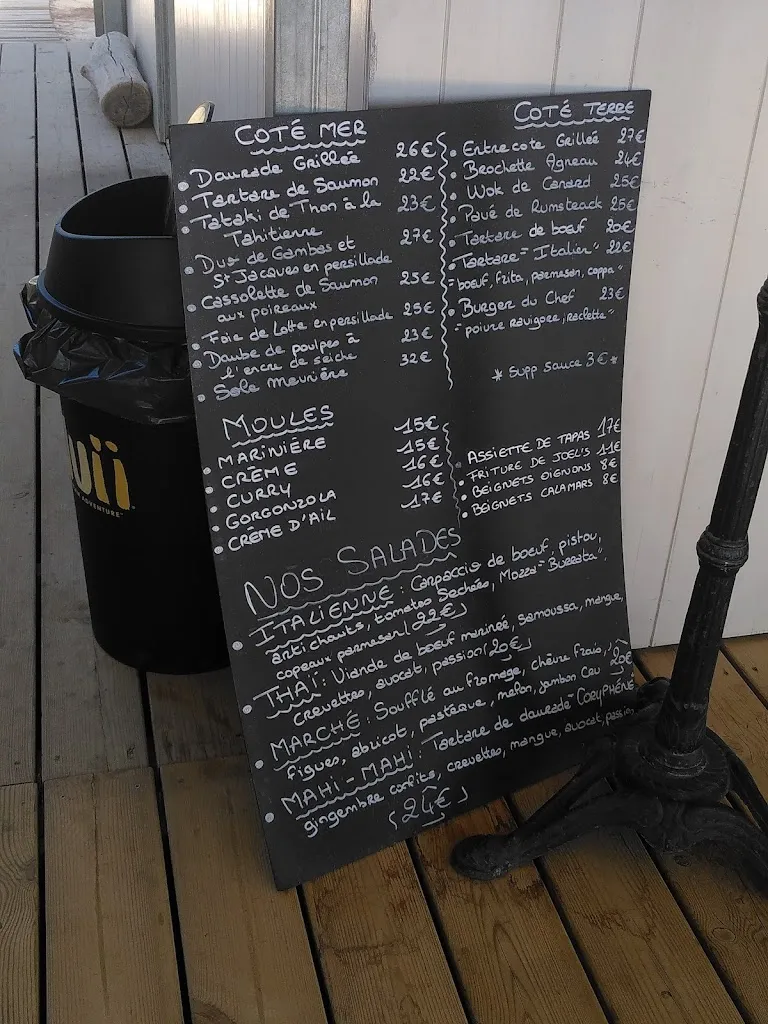 COTÉ MER
• Daurade Grillée 26€
• Tartare de Saumon 22€
• Tataki de Thon à la 23€
Tahitienne
• Duo de Gambas et 27€
St Jacques en persillade
• Cassolette de Saumon 25€
aux poireaux
• Foie de Lotte en persillade 25€
• Daube de poulpes à 23€
l'encre de seiche
• Sole meunière 32€
COTÉ TERRE
• Entrecote Grillée 27€
• Brochette Agneau 24€
• Wok de Canard 25€
• Pavé de Rumsteack 25€
• Tartare de boeuf 20€
• Tartare "Italien" 22€
"boeuf, frita, parmesan, coppa"
• Burger du Chef 23€
"poivre ravigore, raclette"
* Supp sauce 3€ *
MOULES
• MARINIÈRE 15€
• CRÈME 15€
• CURRY 16€
• GORGONZOLA 16€
• CRÈME D'AIL 17€
• ASSIETTE DE TAPAS 17€
• FRITURE DE JOEL'S 11€
• BEIGNETS OIGNONS 8€
• BEIGNETS CALAMARS 8€
NOS SALADES
• ITALIENNE : Carpaccio de boeuf, pistou,
artichauts, tomates Sechées, Mozza "Burrata",
copeaux parmesan (22€)
• THAÏ : Viande de boeuf marinée, samoussa, mangue,
crevettes, avocat, passion (20€)
• MARCHÉ : Soufflé au fromage, chèvre frais,
figues, abricot, pastèque, melon, jambon Cru 20€
• MAHI-MAHI : Tartare de daurade CORYPHÈNE
gingembre confits, crevettes, mangue, avocat, passion
(24€)
uii
ADVENTURE